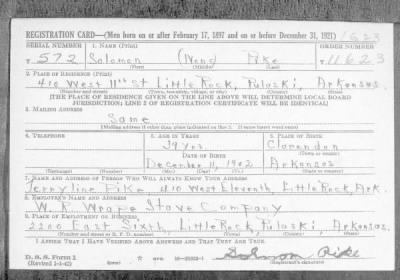 1623
REGISTRATION CARD—(Men born on or after February 17, 1897 and on or before December 31, 1921)
SERIAL NUMBER 1. NAME (Print) ORDER NUMBER
572 Solomon (None) Pike 11623
(First) (Middle) (Last)
2. PLACE OF RESIDENCE (Print)
410 West 11th St Little Rock, Pulaski, Arkansas.
(Number and street) (Town, township, village, or city) (County) (State)
[THE PLACE OF RESIDENCE GIVEN ON THE LINE ABOVE WILL DETERMINE LOCAL BOARD
JURISDICTION; LINE 2 OF REGISTRATION CERTIFICATE WILL BE IDENTICAL]
3. MAILING ADDRESS
Same
[Mailing address if other than place indicated on line 2. If same insert word same]
4. TELEPHONE 5. AGE IN YEARS 6. PLACE OF BIRTH
39 yrs. Clarendon
DATE OF BIRTH (Town or county)
December 11, 1902 Arkansas
(Exchange) (Number) (Mo.) (Day) (Yr.) (State or country)
7. NAME AND ADDRESS OF PERSON WHO WILL ALWAYS KNOW YOUR ADDRESS
Jerryline Pike 410 West Eleventh, Little Rock, Ark.
8. EMPLOYER'S NAME AND ADDRESS
W. R. Wrape Stave Company
9. PLACE OF EMPLOYMENT OR BUSINESS
2200 East Sixth, Little Rock, Pulaski, Arkansas.
(Number and street or R. F. D. number) (Town) (County) (State)
I AFFIRM THAT I HAVE VERIFIED ABOVE ANSWERS AND THAT THEY ARE TRUE.
D. S. S. Form 1
(Revised 1-1-42) (over) Solomon Pike
(Registrant's signature)